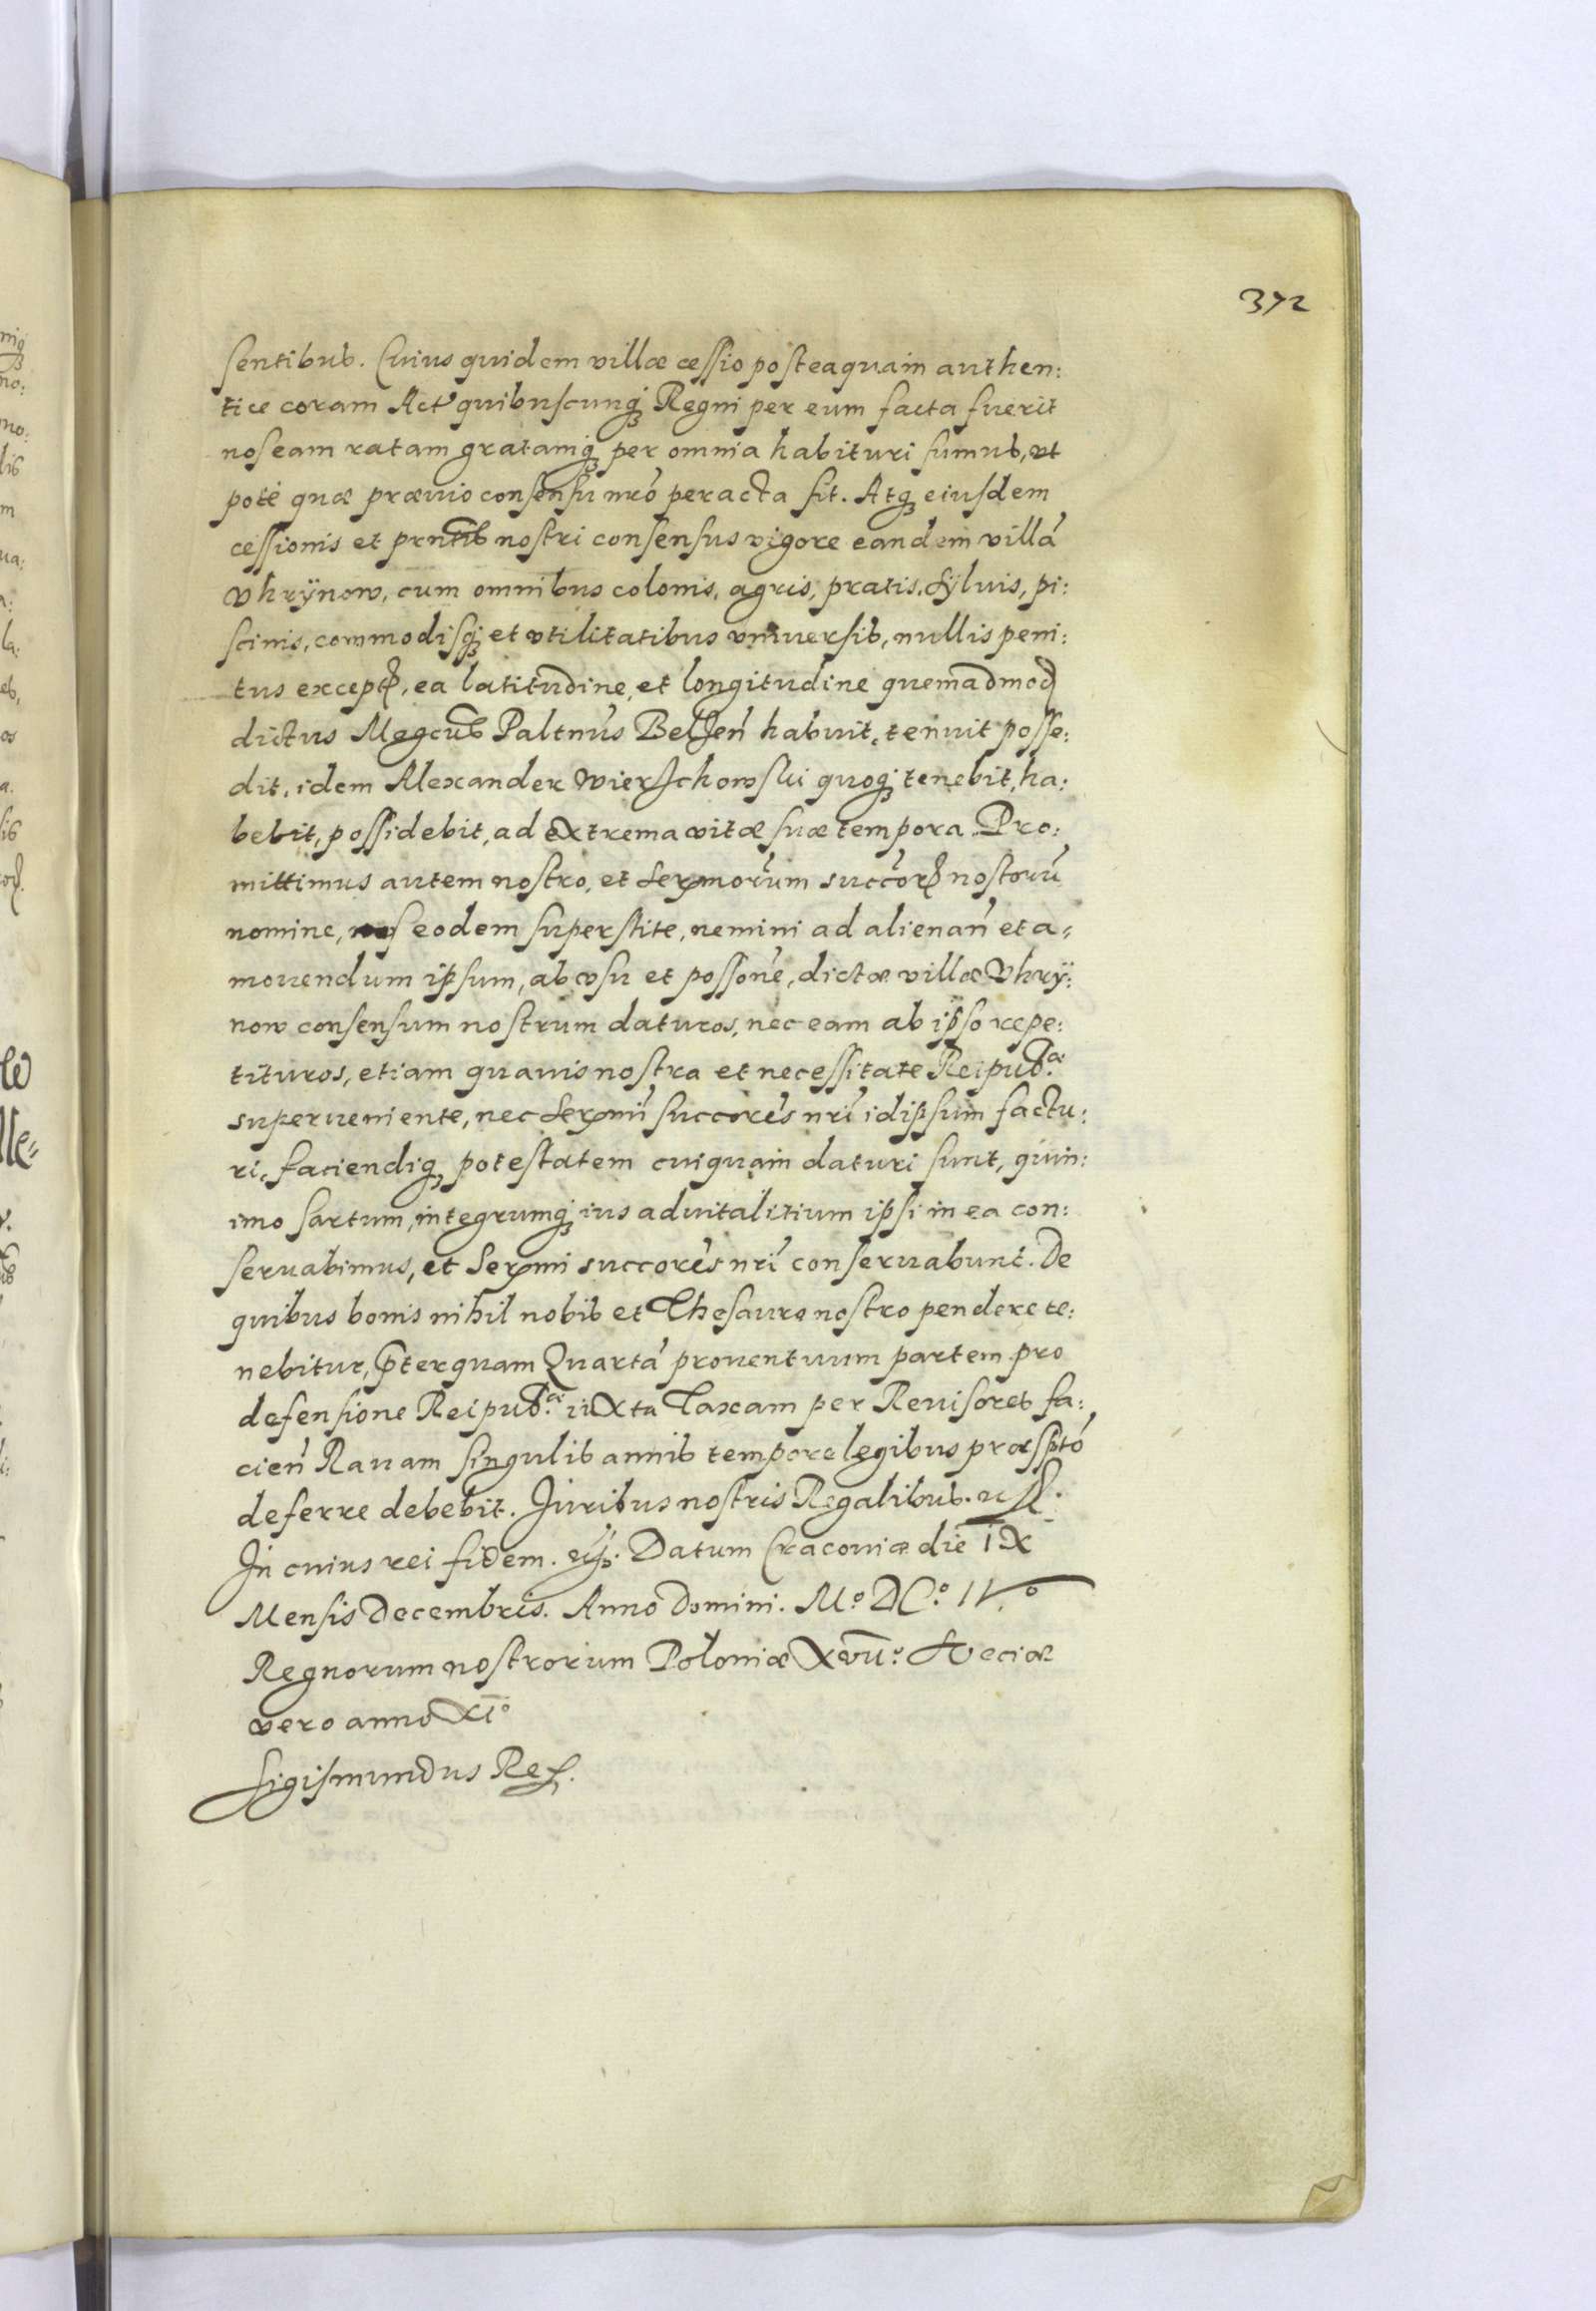 372
sentibus. Cuius quidem villæ cessio posteaquam authen:
tice coram Act' quibuscunq₃ Regni per eum facta fuerit
nos eam ratam gratamq₃ per omnia habituri sumus, ut
poté quæ præuio consensu nrõ peracta sit. Atq₃ eiusdem
cessionis et prntis nostri consensus vigore eandem villã
Vhrÿnow, cum omnibus colonis, agris, pratis, syluis, pi:
scinis, commodisq₃ et vtilitatibus vniuersis, nullis peni:
tus except, ea latitudine, et longitudine quemadmod
dictus Mgcus Paltnus Belzen habuit, tenuit posse:
dit, idem Alexander Wierzchowski quoq₃ tenebit, ha:
bebit, possidebit, ad extrema vitæ suæ tempora. Pro:
mittimus autem nostro, et Serxmorum succor nostorũ
nomine, nos eodem superstite, nemini ad alienan et a:
mouendum ipsum, ab vsu et possone, dictæ villæ Vhrÿ:
now consensum nostrum daturos, nec eam ab ipso repe:
tituros, etiam quauis nostra et necessitate Reipub.ᶜᵃᵉ
superueniente, nec Serxmi succores nri idipsum factu:
ri, faciendiq₃ potestatem cuiquam daturi sunt, quin:
imo sartum, integrumq₃ ius aduitalitium ipsi in ea con:
seruabimus, et Serxmi succores nri conseruabunt. De
quibus bonis nihil nobis et Thesauro nostro pendere te:
nebitur, pterquam Quartã prouentuum partem pro
defensione Reipub.ᶜᵃᵉ iuxta Taxam per Reuisores fa:
cien Rauam singulis annis tempore legibus præsptó
deferre debebit. Juribus nostris Regalibus.
In cuius rei fidem. Datum Cracouiæ die IX
Mensis Decembris. Anno Domini. M.º DC.º IV.º
Regnorum nostrorum Poloniæ XVII.º Sveciæ
vero anno XI.º
Sigismundus Rex.